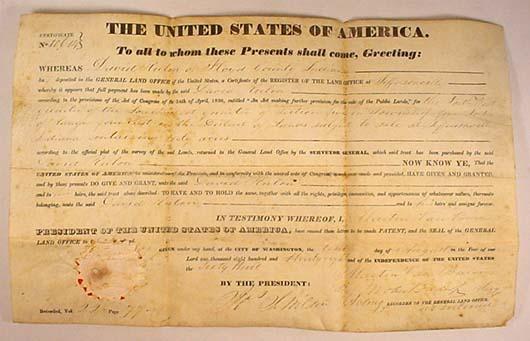 CERTIFICATE
THE UNITED STATES OF AMERICA.
No.
To all to whom these Presents shall come, Greeting:
WHEREAS David of Floyd County Indiana
deposited in the GENERAL LAND OFFICE of the United States, a Certificate of the REGISTER OF THE LAND OFFICE at Jeffersonville
whereby it appears that full payment has been made by the said David
according to the provisions of the Act of Congress of the 24th April, 1820, entitled "An Act making further provision for the sale of the Public Lands," for the
quarter of the quarter of section in Township
of Range in the District of Lands subject to sale at Jeffersonville
Indiana containing acres
according to the official plat of the survey of the said Lands, returned to the General Land Office by the SURVEYOR GENERAL, which said tract has been purchased by the said
David NOW KNOW YE, That the
UNITED STATES OF AMERICA, in consideration of the Premises, and in conformity with the several acts of Congress, in such case made and provided, HAVE GIVEN AND GRANTED,
and by these presents DO GIVE AND GRANT, unto the said David
and to heirs, the said tract above described: TO HAVE AND TO HOLD the same, together with all the rights, privileges, immunities, and appurtenances of whatsoever nature, thereunto
belonging, unto the said David and to his heirs and assigns forever.
IN TESTIMONY WHEREOF, I, Martin Van Buren
PRESIDENT OF THE UNITED STATES OF AMERICA, have caused these Letters to be made PATENT, and the SEAL of the GENERAL
LAND OFFICE to be hereunto affixed.
GIVEN under my hand, at the CITY OF WASHINGTON, the day of August in the Year of our
Lord one thousand eight hundred and thirty and of the INDEPENDENCE OF THE UNITED STATES
the Sixty
BY THE PRESIDENT: Martin Van Buren
By
Acting RECORDER OF THE GENERAL LAND OFFICE
Recorded, Vol. Page